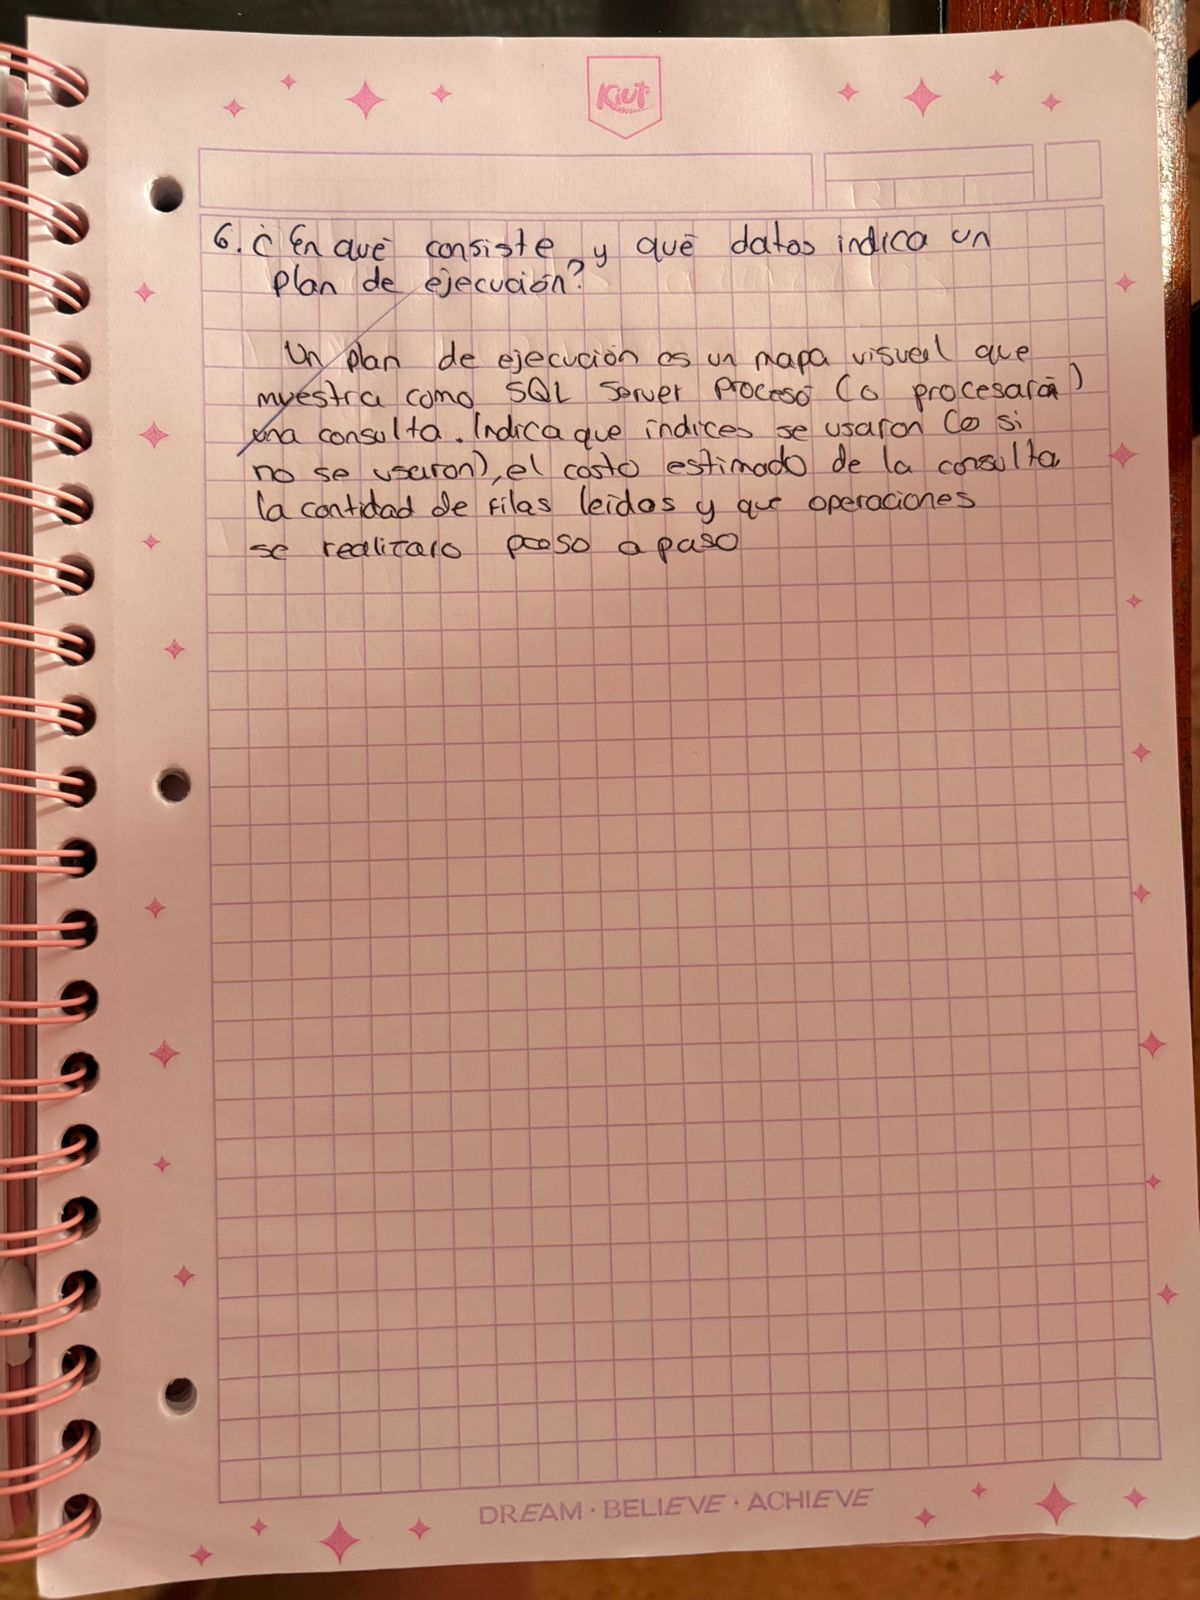 Kiut
6. ¿En qué consiste y qué datos indica un
plan de ejecución?
Un plan de ejecución es un mapa visual que
muestra como SQL Server procesó (o procesará)
una consulta. Indica que índices se usaron (o si
no se usaron), el costo estimado de la consulta
la cantidad de filas leídas y que operaciones
se realizaro paso a paso
DREAM · BELIEVE · ACHIEVE